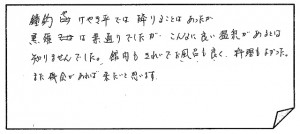 けやき平では降りることはあったが
黒薙では素通りでしたが、こんなに良い温泉があるとは
知りませんでした。館内もきれいでお風呂も良く、料理もよかった。
また機会があれば来たいと思います。